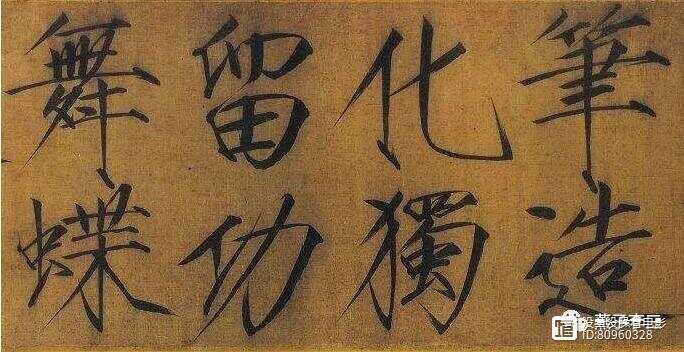 筆造
化獨
留功
舞蝶
ID:80960328